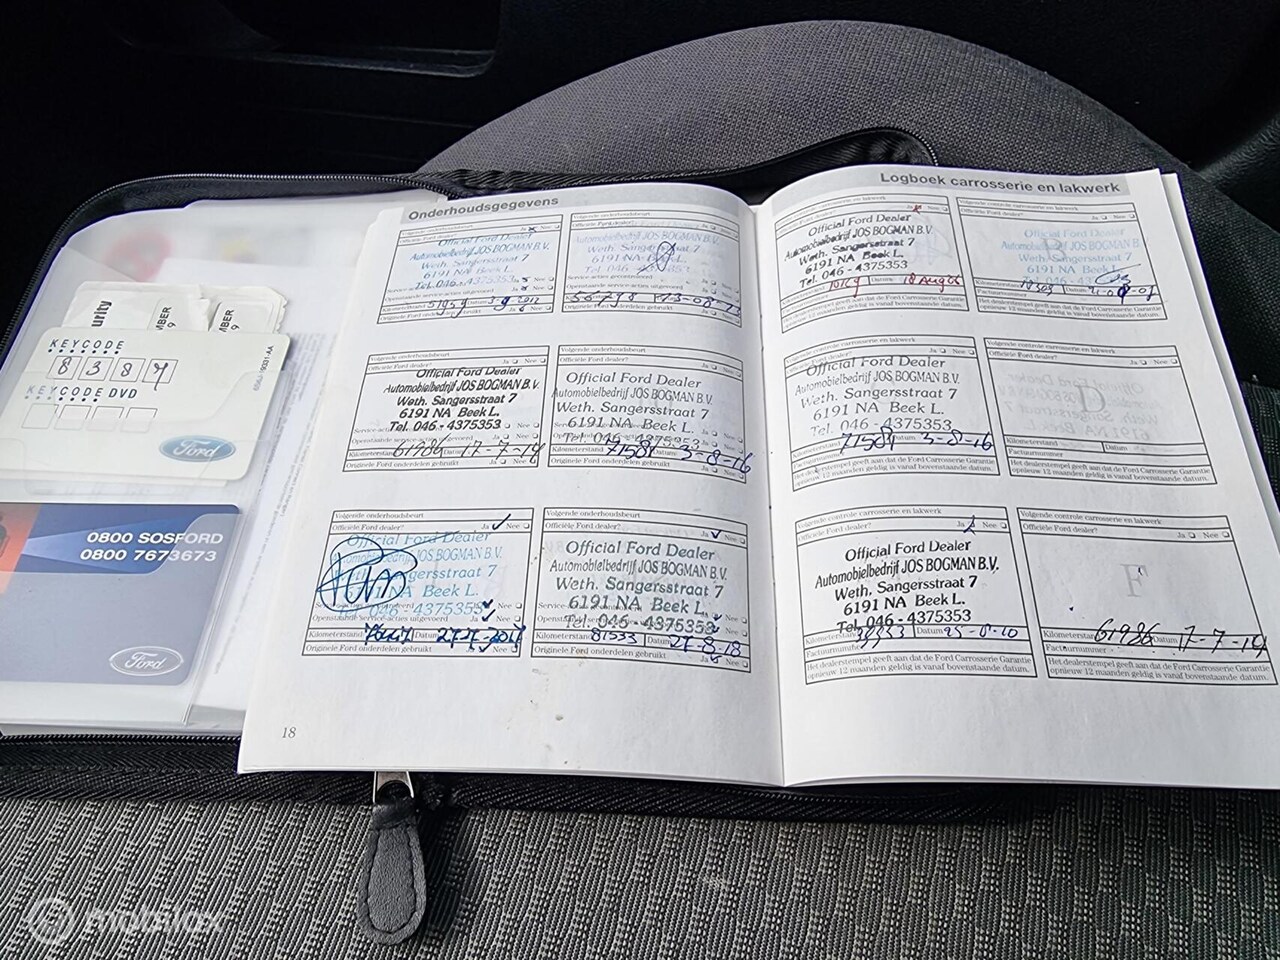 Onderhoudsgegevens
Volgende onderhoudsbeurt
Official Ford Dealer
Automobielbedrijf JOS BOGMAN B.V.
Weth. Sangersstraat 7
6191 NA Beek L.
Tel. 046 - 4375353
Originele Ford onderdelen gebruikt
Volgende onderhoudsbeurt
Official Ford Dealer
Automobielbedrijf JOS BOGMAN B.V.
Weth. Sangersstraat 7
6191 NA Beek L.
Tel. 046 - 4375353
Originele Ford onderdelen gebruikt
Volgende onderhoudsbeurt
Officiële Ford dealer? Ja Nee
Official Ford Dealer
Automobielbedrijf JOS BOGMAN B.V.
Weth. Sangersstraat 7
6191 NA Beek L.
Tel. 046 - 4375353
Kilometerstand Datum 17-7-14
Originele Ford onderdelen gebruikt Ja Nee
Volgende onderhoudsbeurt
Officiële Ford dealer? Ja Nee
Official Ford Dealer
Automobielbedrijf JOS BOGMAN B.V.
Weth. Sangersstraat 7
6191 NA Beek L.
Tel. 046 - 4375353
Kilometerstand 71581 3-8-16
Originele Ford onderdelen gebruikt Ja Nee
Volgende onderhoudsbeurt
Officiële Ford dealer? Ja Nee
Official Ford Dealer
Automobielbedrijf JOS BOGMAN B.V.
Weth. Sangersstraat 7
6191 NA Beek L.
046 - 4375353
Openstaande service-acties uitgevoerd Ja Nee
Kilometerstand Datum
Originele Ford onderdelen gebruikt Ja Nee
Volgende onderhoudsbeurt
Officiële Ford dealer? Ja Nee
Official Ford Dealer
Automobielbedrijf JOS BOGMAN B.V.
Weth. Sangersstraat 7
6191 NA Beek L.
Tel. 046 - 4375353
Kilometerstand 81533 Datum 27-8-18
Originele Ford onderdelen gebruikt Ja Nee
18
Logboek carrosserie en lakwerk
Official Ford Dealer
Automobielbedrijf JOS BOGMAN B.V.
Weth. Sangersstraat 7
6191 NA Beek L.
Tel. 046 - 4375353
Datum 18 Aug 06
Het dealerstempel geeft aan dat de Ford Carrosserie Garantie
opnieuw 12 maanden geldig is vanaf bovenstaande datum.
Volgende controle carrosserie en lakwerk
Official Ford Dealer
Automobielbedrijf JOS BOGMAN B.V.
Weth. Sangersstraat 7
6191 NA Beek L.
Tel. 046 - 4375353
Het dealerstempel geeft aan dat de Ford Carrosserie Garantie
opnieuw 12 maanden geldig is vanaf bovenstaande datum.
Volgende controle carrosserie en lakwerk
Official Ford Dealer
Automobielbedrijf JOS BOGMAN B.V.
Weth. Sangersstraat 7
6191 NA Beek L.
Tel. 046 - 4375353
71581 Datum 3-8-16
Factuurnummer
Het dealerstempel geeft aan dat de Ford Carrosserie Garantie
opnieuw 12 maanden geldig is vanaf bovenstaande datum.
Volgende controle carrosserie en lakwerk
Officiële Ford dealer? Ja Nee
D
Kilometerstand Datum
Factuurnummer
Het dealerstempel geeft aan dat de Ford Carrosserie Garantie
opnieuw 12 maanden geldig is vanaf bovenstaande datum.
Volgende controle carrosserie en lakwerk
Officiële Ford dealer? Ja Nee
Official Ford Dealer
Automobielbedrijf JOS BOGMAN B.V.
Weth. Sangersstraat 7
6191 NA Beek L.
Tel. 046 - 4375353
Kilometerstand Datum
Factuurnummer
Het dealerstempel geeft aan dat de Ford Carrosserie Garantie
opnieuw 12 maanden geldig is vanaf bovenstaande datum.
Volgende controle carrosserie en lakwerk
Officiële Ford dealer? Ja Nee
F
Kilometerstand 61986 Datum 17-7-14
Factuurnummer
Het dealerstempel geeft aan dat de Ford Carrosserie Garantie
opnieuw 12 maanden geldig is vanaf bovenstaande datum.
KEYCODE
8387
KEYCODE DVD
Ford
0800 SOSFORD
0800 7673673
Ford
mobilox